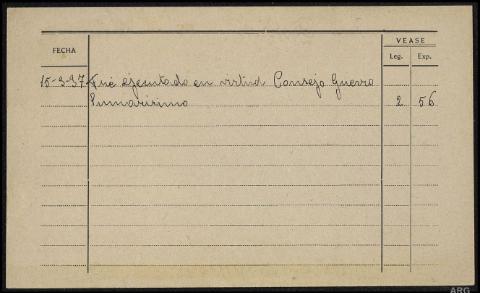 VEASE
FECHA Leg. Exp.
15-3-37 Fué ejecutado en virtud Consejo Guerra
Sumarísimo 2 56
ARG